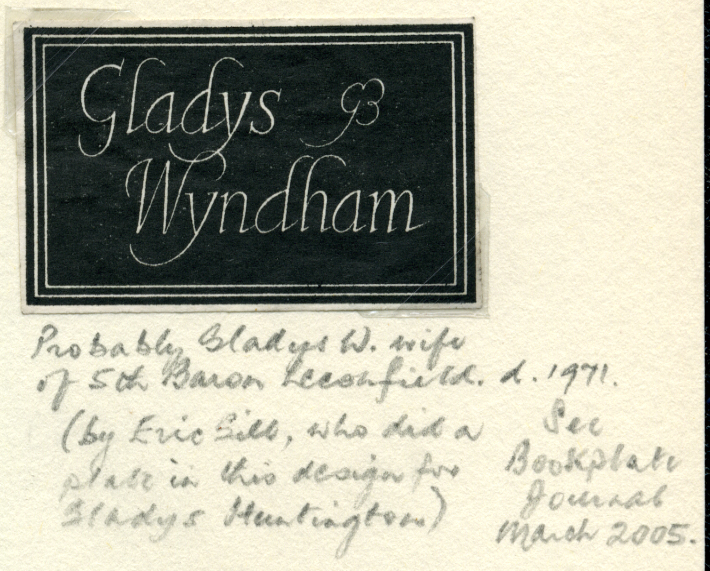 Gladys
Wyndham
Probably Gladys W. wife
of 5th Baron Leconfield. d. 1971.
(by Eric Gill, who did a
plate in this design for
Gladys Huntington)
See
Bookplate
Journal
March 2005.